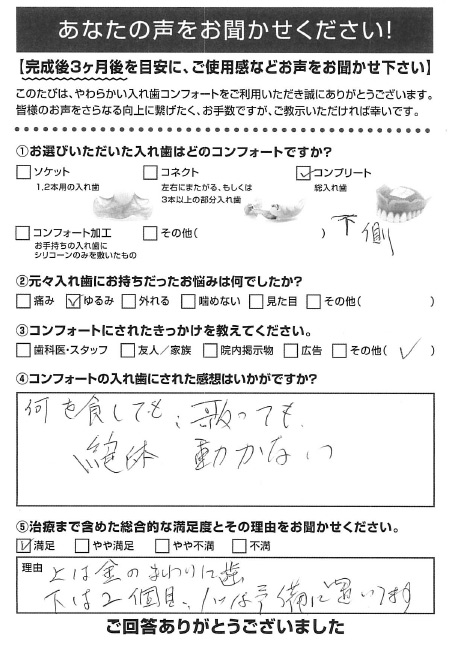 あなたの声をお聞かせください!
【完成後3ヶ月後を目安に、ご使用感などお声をお聞かせ下さい】
このたびは、やわらかい入れ歯コンフォートをご利用いただき誠にありがとうございます。
皆様のお声をさらなる向上に繋げたく、お手数ですが、ご教示いただければ幸いです。
①お選びいただいた入れ歯はどのコンフォートですか?
□ソケット □コネクト ☑コンプリート
1,2本用の入れ歯 左右にまたがる、もしくは 総入れ歯
3本以上の部分入れ歯
□コンフォート加工 □その他( ) 下側
お手持ちの入れ歯に
シリコーンのみを敷いたもの
②元々入れ歯にお持ちだったお悩みは何でしたか?
□痛み ☑ゆるみ □外れる □噛めない □見た目 □その他( )
③コンフォートにされたきっかけを教えてください。
□歯科医・スタッフ □友人/家族 □院内掲示物 □広告 □その他( ✓ )
④コンフォートの入れ歯にされた感想はいかがですか?
何を食しても、歌っても、
絶体 動かない
⑤治療まで含めた総合的な満足度とその理由をお聞かせください。
☑満足 □やや満足 □やや不満 □不満
理由 上は金の
下は2個目、1つは予備に置いてます
ご回答ありがとうございました